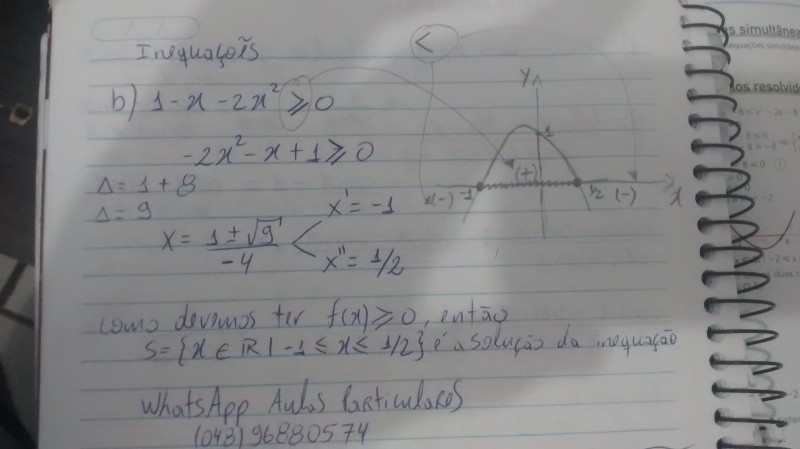 Inequações
<
b) 1 - x - 2x² ≥ 0
-2x² - x + 1 ≥ 0
Δ = 1 + 8
Δ = 9
x = 1 ± √9 / -4
x' = -1
x'' = 1/2
y
1
(+)
(-) -1
1/2 (-)
x
como devemos ter f(x) ≥ 0, então
S = {x ∈ ℝ | -1 ≤ x ≤ 1/2} é a solução da inequação
WhatsApp Aulas Particulares
(048) 96880574
os resolvid